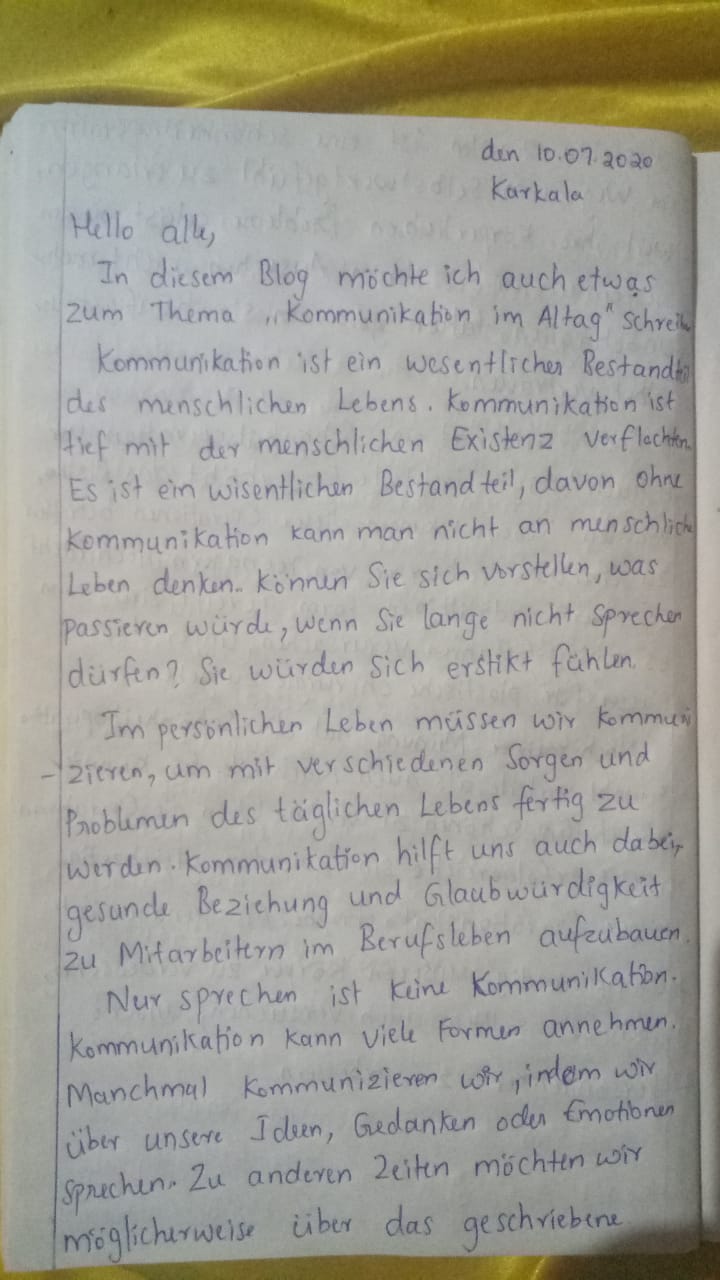 den 10.07.2020
Karkala
Hello alle,
In diesem Blog möchte ich auch etwas
zum Thema „Kommunikation im Altag" schreib
Kommunikation ist ein wesentlicher Bestandtei
des menschlichen Lebens. Kommunikation ist
tief mit der menschlichen Existenz verflochten.
Es ist ein wisentlichen Bestandteil, davon ohne
Kommunikation kann man nicht an menschliche
Leben denken. Können Sie sich vorstellen, was
passieren würde, wenn Sie lange nicht sprechen
dürfen? Sie würden sich erstikt fühlen.
Im persönlichen Leben müssen wir kommuni
-zieren, um mit verschiedenen Sorgen und
Problemen des täglichen Lebens fertig zu
werden. Kommunikation hilft uns auch dabei,
gesunde Beziehung und Glaubwürdigkeit
zu Mitarbeitern im Berufsleben aufzubauen.
Nur sprechen ist keine Kommunikation.
Kommunikation kann viele Formen annehmen.
Manchmal kommunizieren wir, indem wir
über unsere Ideen, Gedanken oder Emotionen
sprechen. Zu anderen Zeiten möchten wir
möglicherweise über das geschriebene